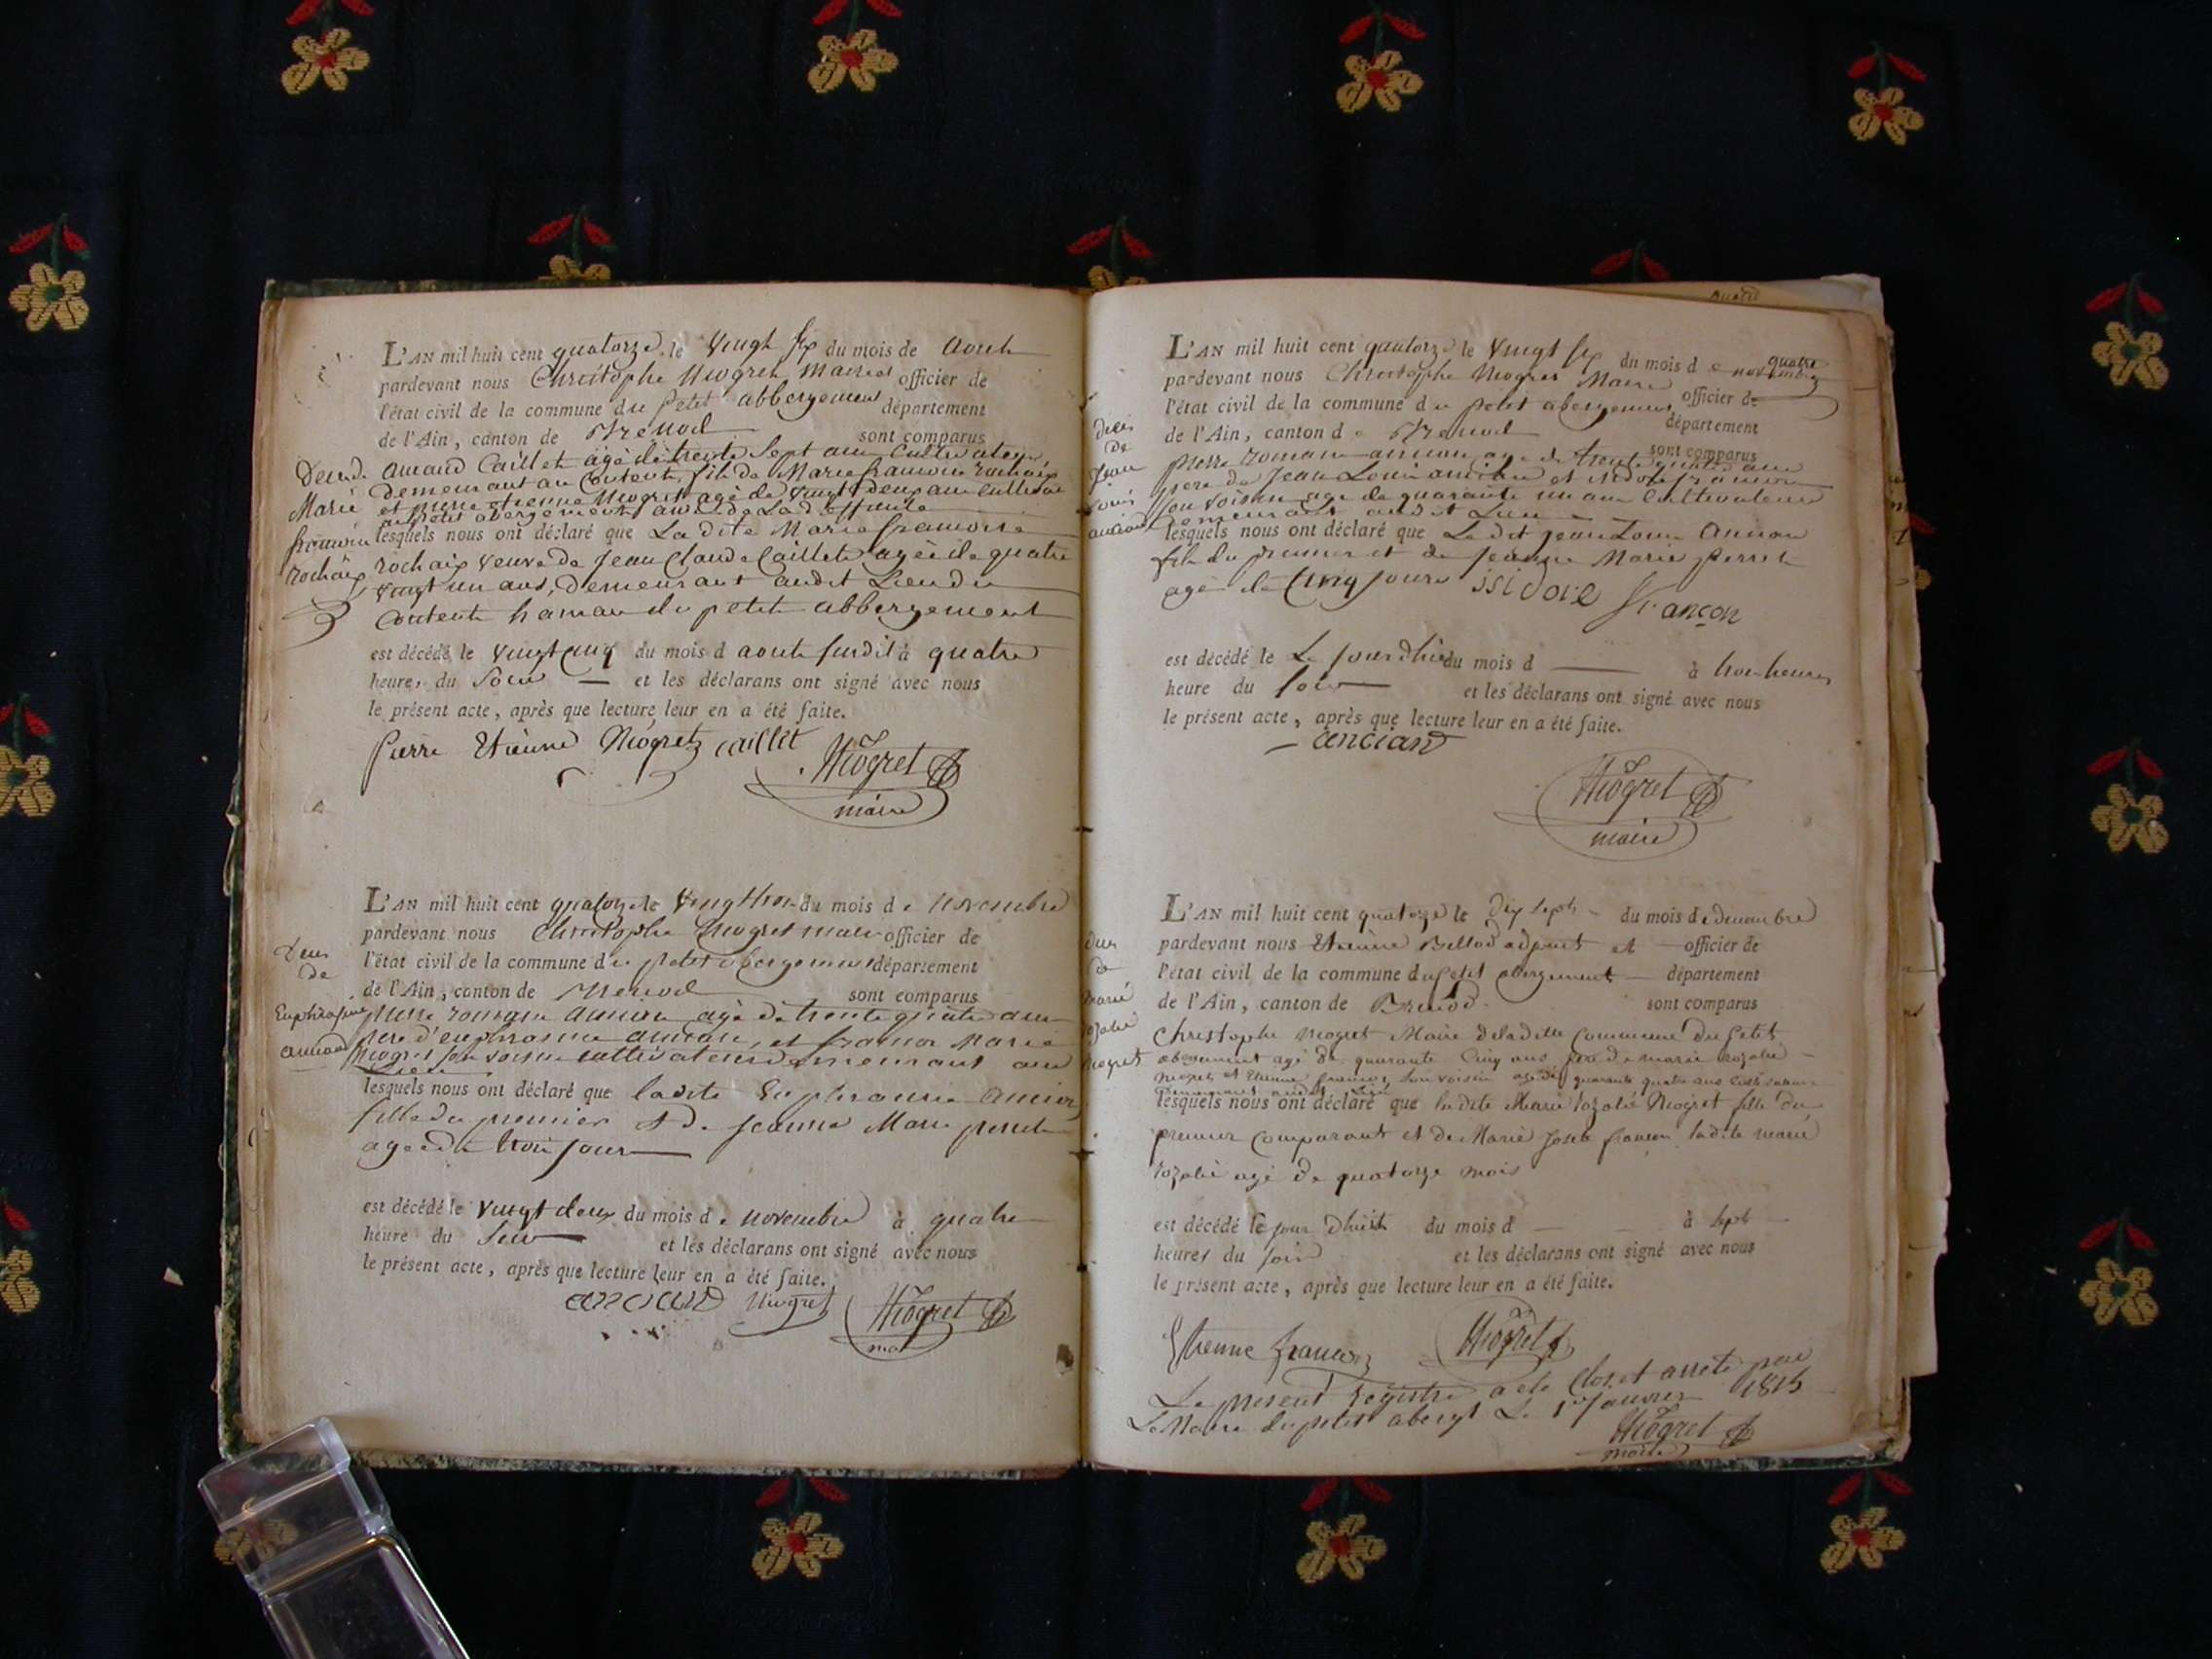 L'AN mil huit cent quatorze le vingt six du mois de aout
pardevant nous Christophe Niogret maire officier de
l'état civil de la commune du petit abbergement département
de l'Ain, canton de Brenod sont comparus
Deces de amand Caillet agé de trente sept ans cultivateur
Marie demeurant au Contenti fils de Marie francoise rochaix
et pierre etienne Niogret agé de vingt deux ans cultivateur
au petit abergement
francoise lesquels nous ont déclaré que La dite Marie francoise
rochaix rochaix veuve de Jean Claude Caillet agée de quatre
vingt un ans, demeurant audit Lieu du
hamau du petit abbergement
est décédé le vingt cinq du mois d aout susdit à quatre
heure, du Soir et les déclarans ont signé avec nous
le présent acte, après que lecture leur en a été faite.
Pierre Etienne Niogret caillet Niogret
maire
L'AN mil huit cent quatorze le vingt trois du mois de novembre
pardevant nous Christophe Niogret maire officier de
l'état civil de la commune du petit abergement département
de l'Ain, canton de Brenod sont comparus
Deces
de
Euphrasine pierre romain ancian agé de trente quatre ans
ancian pere d'euphrasine anciain, et francois Marie
Niogret son voisin cultivateurs demeurant au
Lieu
lesquels nous ont déclaré que ladite Euphrasine ancian
fille du premier et de jeanne Marie perret
agée de trois jours
est décédé le vingt deux du mois de novembre à quatre
heure du Soir et les déclarans ont signé avec nous
le présent acte, après que lecture leur en a été faite.
anciand Niogret Niogret
L'AN mil huit cent quatorze le vingt six du mois de novembre
pardevant nous Christophe Niogret Maire officier de
l'état civil de la commune du petit abergement département
de l'Ain, canton de Brenod sont comparus
deces
de
Jean
Louis
ancian
pierre romain ancian agé de trente quatre ans
pere de Jean Louis ancian et isidore francon
son voisin agé de quarante un ans Cultivateurs
demeurants audit Lieu
lesquels nous ont déclaré que Le dit jean Louis Ancian
fils du premier et de jeanne Marie perret
agé de Cinq jours issidore francon
est décédé le Le jourdhui du mois d à heures
heure du soir et les déclarans ont signé avec nous
le présent acte, après que lecture leur en a été faite.
anciand
Niogret
maire
L'AN mil huit cent quatorze le dix sept du mois de decembre
pardevant nous Etienne Bellod adjoint et officier de
l'état civil de la commune du petit abergement département
de l'Ain, canton de Brenod sont comparus
deces
de
marie
rozalie
niogret
Christophe Niogret Maire de ladite Commune du petit
abergement agé de quarante Cinq ans pere de marie rozalie
Niogret et Etienne francon, son voisin agé de quarante quatre ans cultivateurs
demeurant audit Lieu
lesquels nous ont déclaré que ladite Marie rozalie Niogret fille du
premier Comparant et de Marie Josete francon ladite marie
rozalie agé de quatorze mois
est décédé le jour dhuit du mois d à sept
heures du soir et les déclarans ont signé avec nous
le présent acte, après que lecture leur en a été faite.
Etienne francon Niogret
Le present registre a eté Clos et arreté par
Le Maire du petit abergt Le 1er Janvier 1815
Niogret
maire